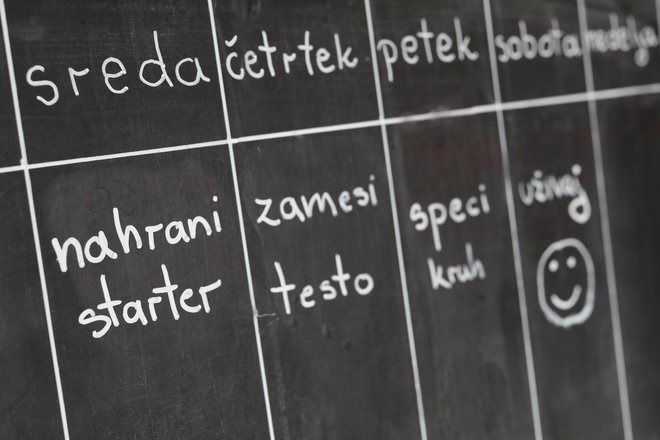 sreda četrtek petek sobota nedelja
nahrani zamesi speci uživaj
starter testo kruh